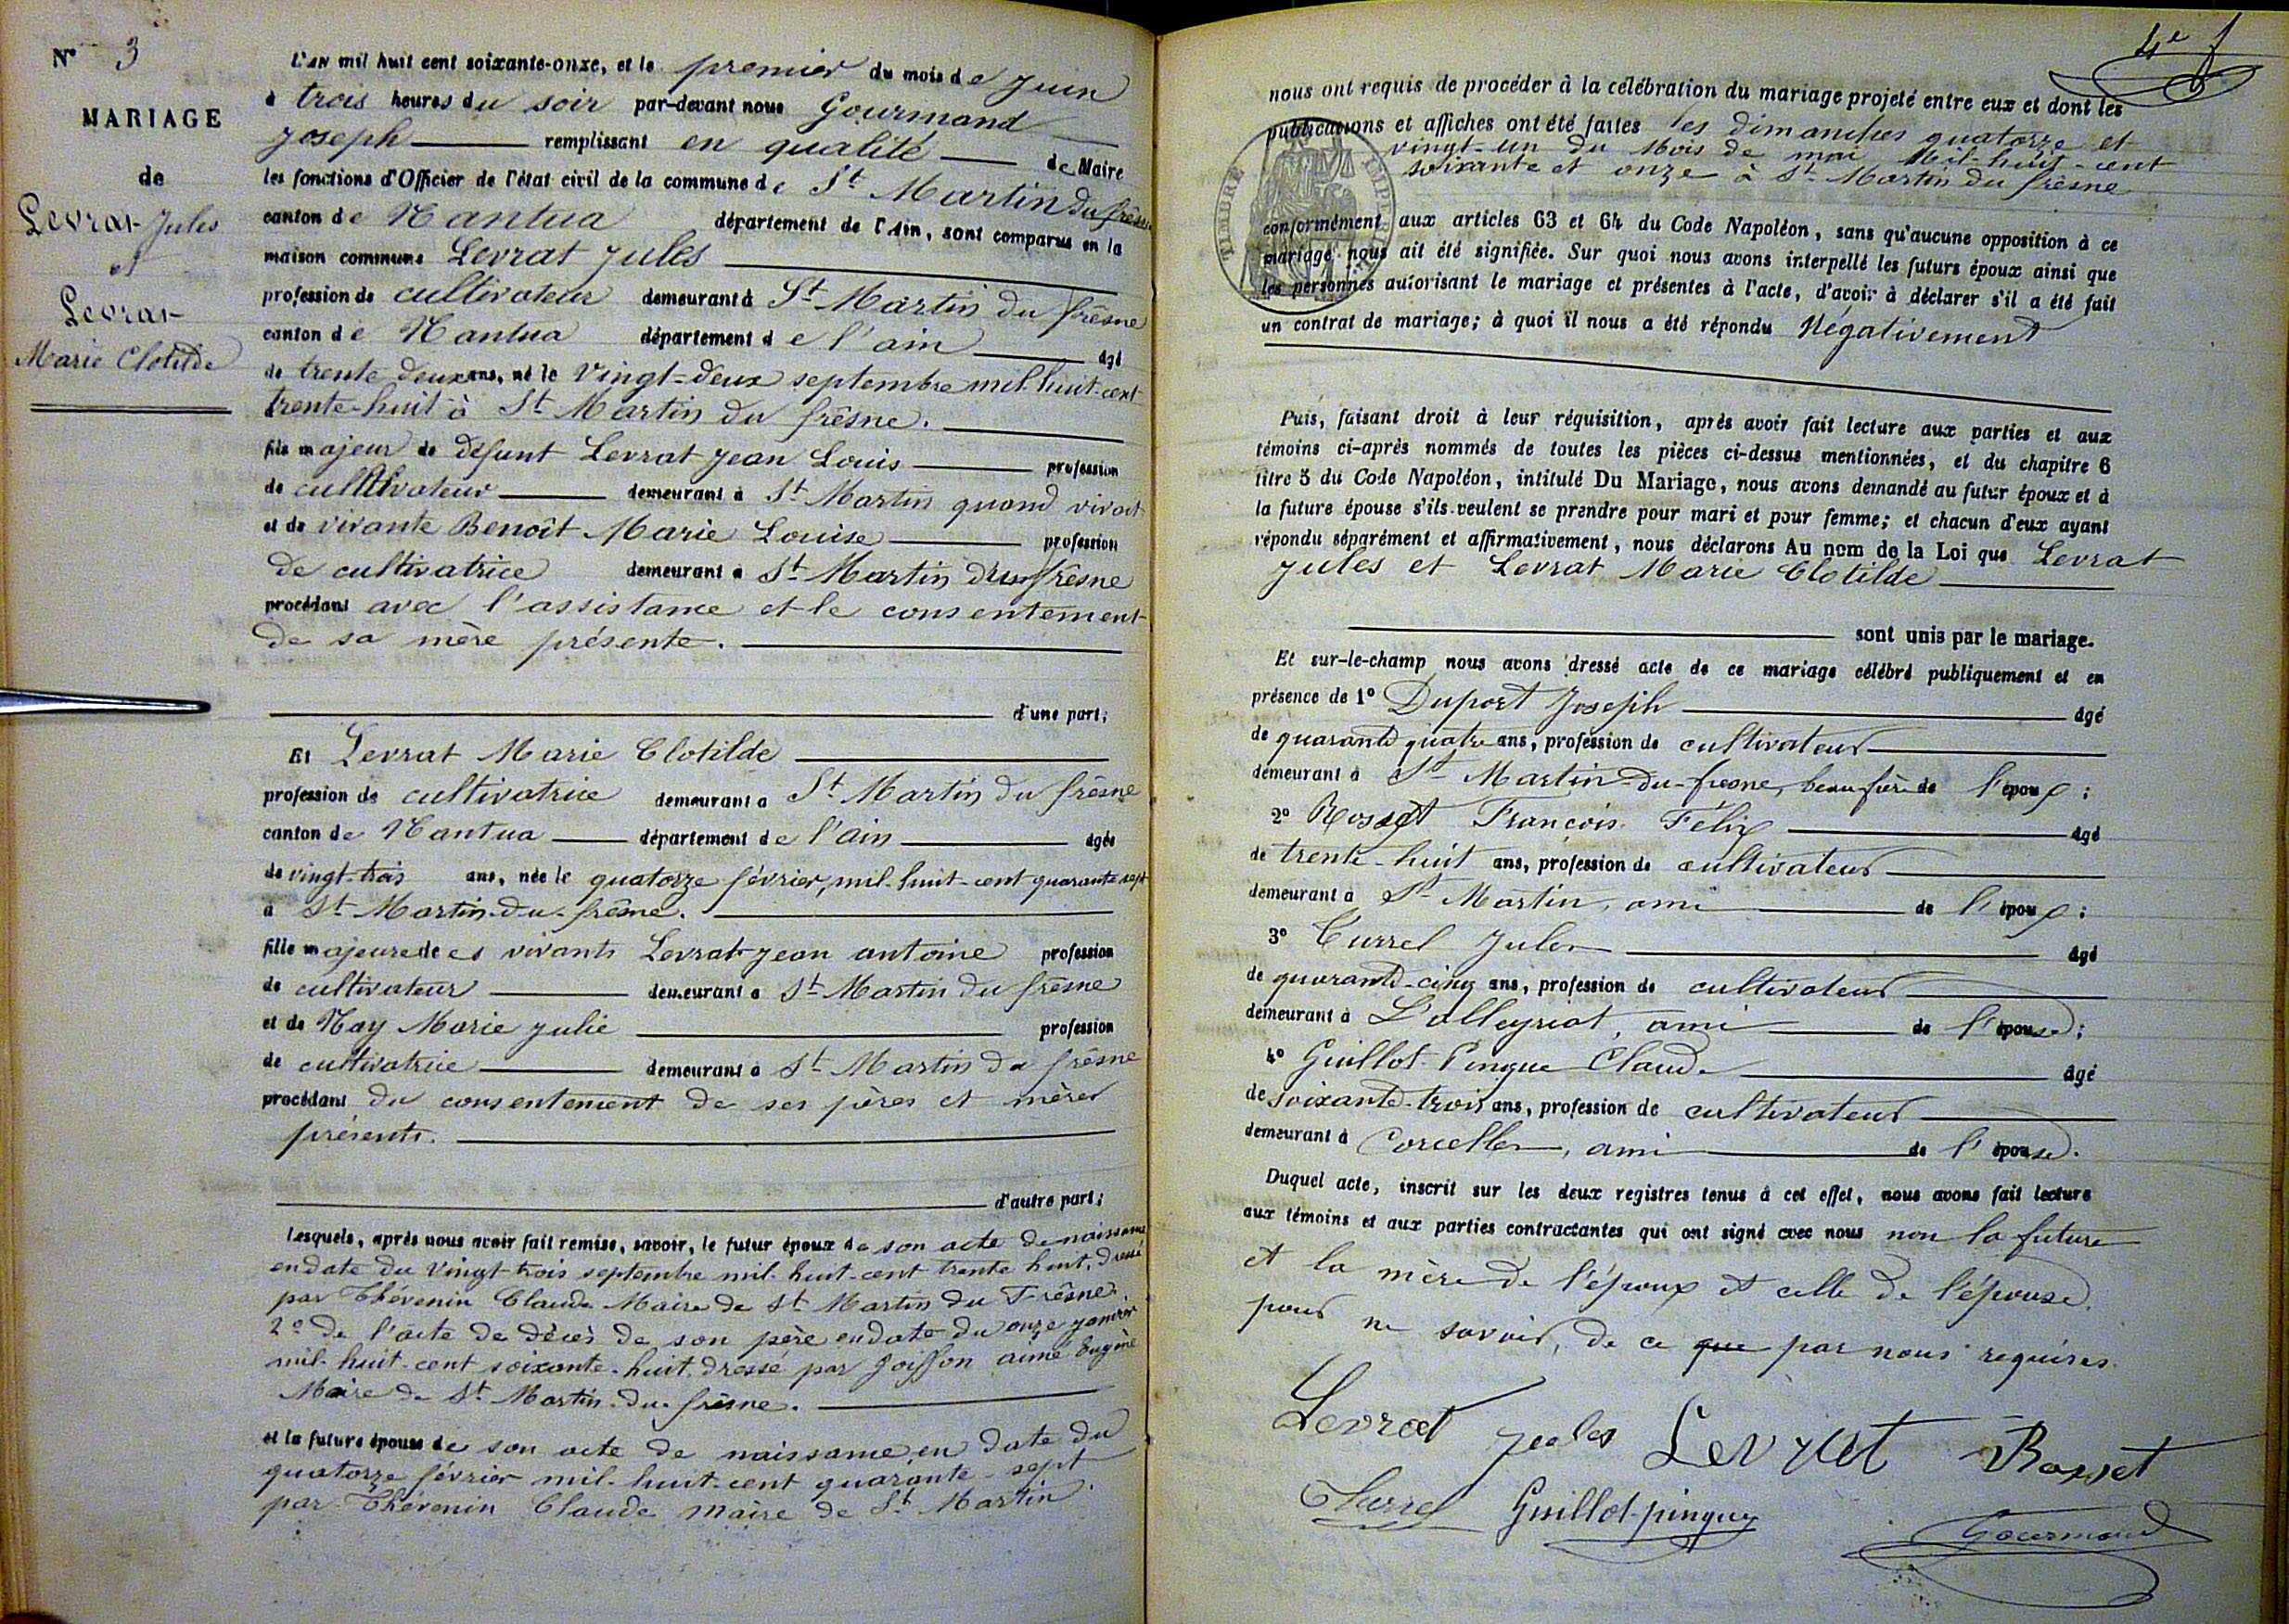 N° 3
MARIAGE
de
Levrat Jules
et
Levrat
Marie Clotilde
L'AN mil huit cent soixante-onze, et le premier du mois de Juin
à trois heures du soir par-devant nous Gourmand
Joseph remplissant en qualité de Maire
les fonctions d'Officier de l'état civil de la commune de St Martin du frêsne
canton de Nantua département de l'Ain, sont comparus en la
maison commune Levrat Jules
profession de cultivateur demeurant à St Martin du frêsne
canton de Nantua département de l'ain âgé
de trente deux ans, né le vingt-deux septembre mil huit-cent
trente-huit à St Martin du frêsne.
fils majeur de défunt Levrat Jean Louis profession
de cultivateur demeurant à St Martin quand vivait
et de vivante Benoît Marie Louise profession
de cultivatrice demeurant à St Martin du frêsne
procédant avec l'assistance et le consentement
de sa mère présente.
d'une part;
Et Levrat Marie Clotilde
profession de cultivatrice demeurant à St Martin du frêsne
canton de Nantua département de l'ain âgée
de vingt-trois ans, née le quatorze février, mil-huit-cent quarante sept
à St Martin-du-frêsne.
fille majeure de es vivants Levrat Jean antoine profession
de cultivateur demeurant à St Martin du frêsne
et de Nay Marie Julie profession
de cultivatrice demeurant à St Martin du frêsne
procédant du consentement de ses pères et mères
présents.
d'autre part;
Lesquels, après nous avoir fait remise, savoir, le futur époux de son acte de naissance
en date du vingt trois septembre mil-huit-cent trente huit, dressé
par Thévenin Claude Maire de St Martin du Frêsne.
2° de l'acte de décès de son père en date du onze janvier
mil-huit-cent soixante-huit, dressé par Goiffon aimé Eugène
Maire de St Martin-du-frêsne.
et la future épouse de son acte de naissance, en date du
quatorze février mil-huit-cent quarante-sept
par Thévenin Claude Maire de St Martin.
4e f
nous ont requis de procéder à la célébration du mariage projeté entre eux et dont les
publications et affiches ont été faites les dimanches quatorze et
vingt-un du Mois de mai Mil-huit-cent
soixante et onze à St Martin du frêsne
TIMBRE IMPÉRIAL
conformément aux articles 63 et 64 du Code Napoléon, sans qu'aucune opposition à ce
mariage nous ait été signifiée. Sur quoi nous avons interpellé les futurs époux ainsi que
les personnes autorisant le mariage et présentes à l'acte, d'avoir à déclarer s'il a été fait
un contrat de mariage; à quoi il nous a été répondu Négativement
Puis, faisant droit à leur réquisition, après avoir fait lecture aux parties et aux
témoins ci-après nommés de toutes les pièces ci-dessus mentionnées, et du chapitre 6
titre 5 du Code Napoléon, intitulé Du Mariage, nous avons demandé au futur époux et à
la future épouse s'ils veulent se prendre pour mari et pour femme; et chacun d'eux ayant
répondu séparément et affirmativement, nous déclarons Au nom de la Loi que Levrat
Jules et Levrat Marie Clotilde
sont unis par le mariage.
Et sur-le-champ nous avons dressé acte de ce mariage célébré publiquement et en
présence de 1° Duport Joseph âgé
de quarante quatre ans, profession de cultivateur
demeurant à St Martin-du-fresne, beau frère de l'époux;
2° Rosset François Félix âgé
de trente-huit ans, profession de cultivateur
demeurant à St Martin, ami de l'époux;
3° Currel Jules âgé
de quarante-cinq ans, profession de cultivateur
demeurant à L'alleyriat, ami de l'épouse;
4° Guillot-Pingue Claude âgé
de soixante-trois ans, profession de cultivateur
demeurant à Corcelles, ami de l'épouse.
Duquel acte, inscrit sur les deux registres tenus à cet effet, nous avons fait lecture
aux témoins et aux parties contractantes qui ont signé avec nous non la future
et la mère de l'époux et celle de l'épouse
pour ne savoir, de ce que par nous requises.
Levrat Jules Levrat Rosset
Currel Guillot-pingue Gourmand